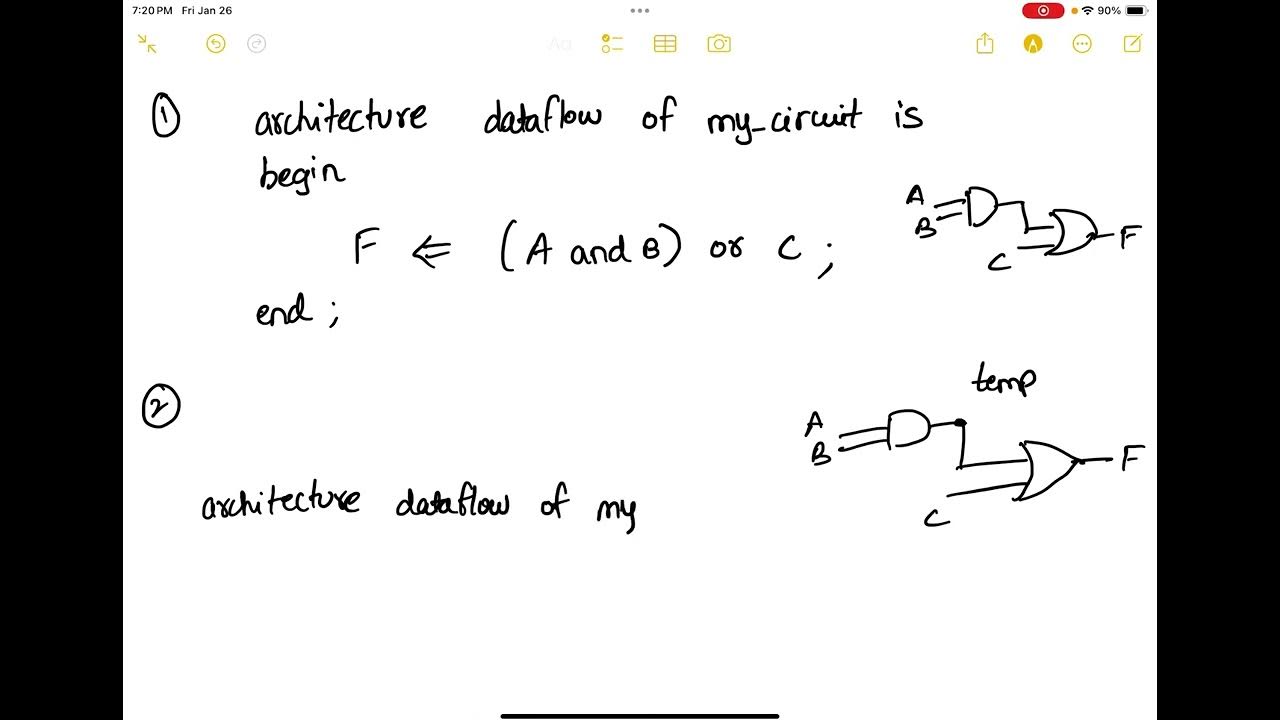 7:20 PM Fri Jan 26
90%
Aa
1 architecture dataflow of my_circuit is
begin
F <= (A and B) or C ;
end ;
A
B
C
F
2
temp
A
B
C
F
architecture dataflow of my